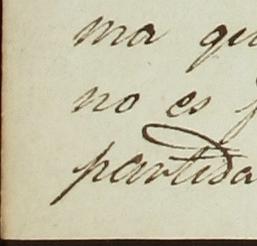 ma qu
no es f
partida